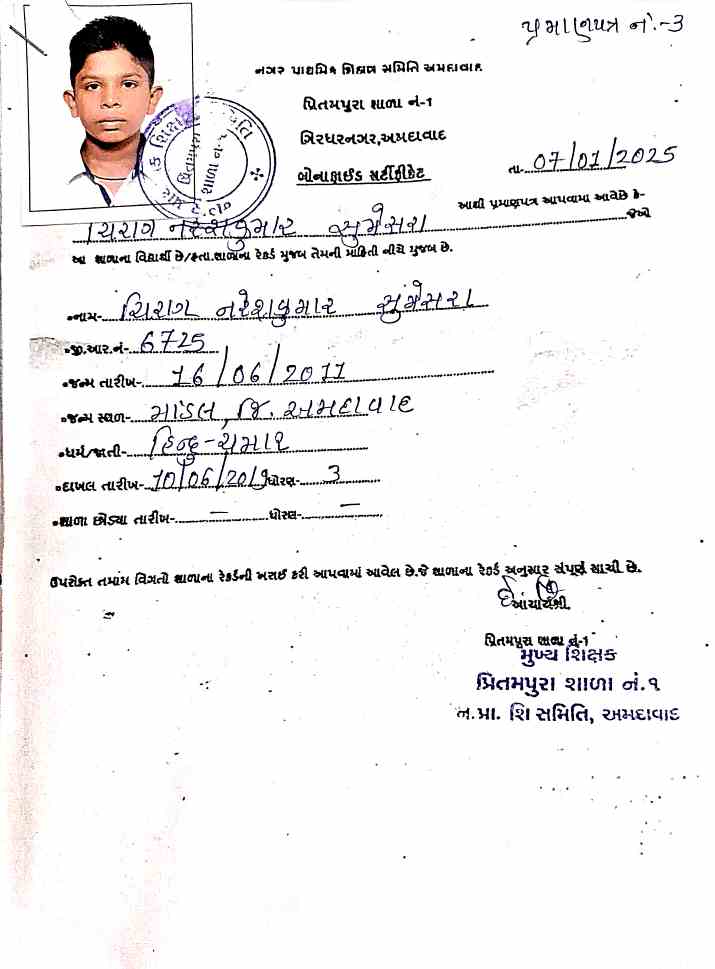 પ્રમાણપત્ર નં.-3
નગર પ્રાથમિક શિક્ષણ સમિતિ અમદાવાદ
પ્રિતમપુરા શાળા નં-૧
ગિરધરનગર,અમદાવાદ
બોનાફાઈડ સર્ટીફીકેટ
તા- 07/01/2025
આથી પ્રમાણપત્ર આપવામા આવેછે કે-
ચિરાગ નરેશકુમાર સુમેસરા જેઓ
આ શાળાના વિદ્યાર્થી છે/હતા.શાળાના રેકર્ડ મુજબ તેમની માહિતી નીચે મુજબ છે.
•નામ- ચિરાગ નરેશકુમાર સુમેસરા
•જી.આર.નં- 6725
•જન્મ તારીખ- 16/06/2011
•જન્મ સ્થળ- માંડલ, જિ. અમદાવાદ
•ધર્મ/જાતી- હિન્દુ-ચમાર
•દાખલ તારીખ- 10/06/2019 ધોરણ- 3
•શાળા છોડ્યા તારીખ- — ધોરણ- —
ઉપરોક્ત તમામ વિગતો શાળાના રેકર્ડની ખરાઈ કરી આપવામાં આવેલ છે.જે શાળાના રેકર્ડ અનુસાર સંપૂર્ણ સાચી છે.
આચાર્યશ્રી
પ્રિતમપુરા શાળા નં-૧
મુખ્ય શિક્ષક
પ્રિતમપુરા શાળા નં.૧
ન.પ્રા. શિ સમિતિ, અમદાવાદ